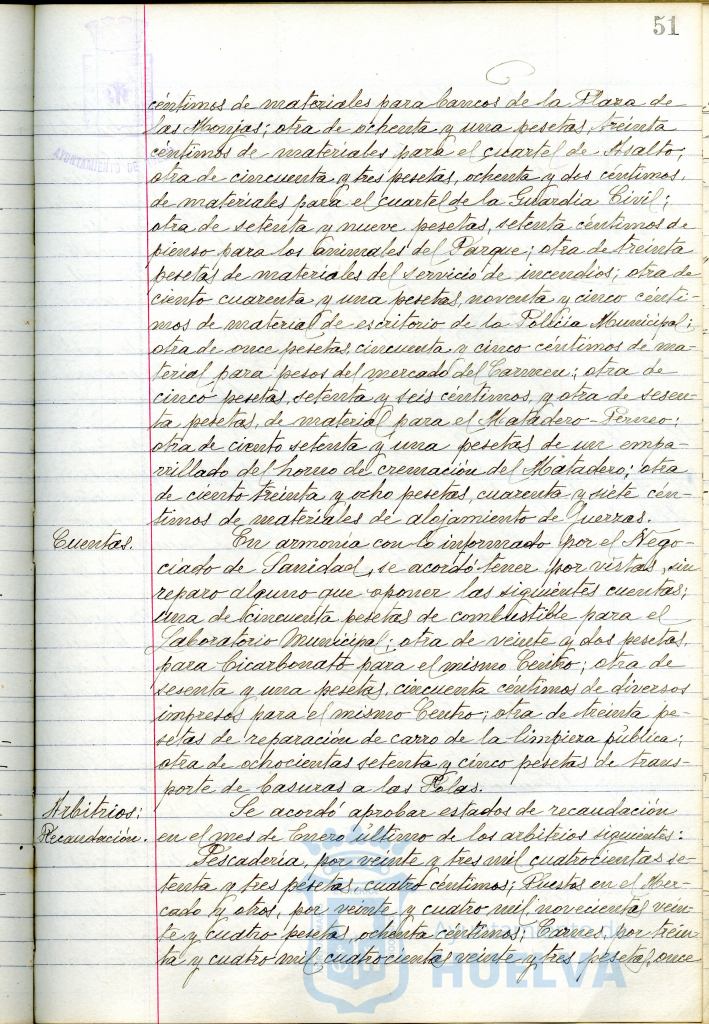 51
céntimos de materiales para bancos de la Plaza de
las Monjas; otra de ochenta y una pesetas, treinta
céntimos de materiales para el cuartel de Asalto;
otra de cincuenta y tres pesetas, ochenta y dos céntimos,
de materiales para el cuartel de la Guardia Civil;
otra de setenta y nueve pesetas, setenta céntimos de
pienso para los animales del Parque; otra de treinta
pesetas de materiales del servicio de incendios; otra de
ciento cuarenta y una pesetas, noventa y cinco cénti-
mos de material de escritorio de la Policía Municipal;
otra de once pesetas, cincuenta y cinco céntimos de ma-
terial para pesos del mercado del Carmen; otra de
cinco pesetas, setenta y seis céntimos, y otra de sesen-
ta pesetas, de material para el Matadero-Perneo;
otra de ciento setenta y una pesetas de un empa-
rrillado del horno de cremación del Matadero; otra
de ciento treinta y ocho pesetas, cuarenta y siete cén-
timos de materiales de alojamiento de fuerzas.
Cuentas. En armonía con lo informado por el Nego-
ciado de Sanidad, se acordó tener por vistas, sin
reparo alguno que oponer las siguientes cuentas;
una de cincuenta pesetas de combustible para el
Laboratorio Municipal; otra de veinte y dos pesetas,
para bicarbonato para el mismo Centro; otra de
sesenta y una pesetas, cincuenta céntimos de diversos
impresos para el mismo Centro; otra de treinta pe-
setas de reparación de carro de la limpieza pública;
otra de ochocientas setenta y cinco pesetas de trans-
porte de basuras a las
Arbitrios: Se acordó aprobar estados de recaudación
Recaudación. en el mes de Enero último de los arbitrios siguientes:
Pescadería, por veinte y tres mil cuatrocientas se-
tenta y tres pesetas, cuatro céntimos; Puestos en el Mer-
cado y otros, por veinte y cuatro mil novecientas vein-
te y cuatro pesetas, ochenta céntimos; Carnes, por trein-
ta y cuatro mil cuatrocientas veinte y tres pesetas, once
AYUNTAMIENTO DE
HUELVA